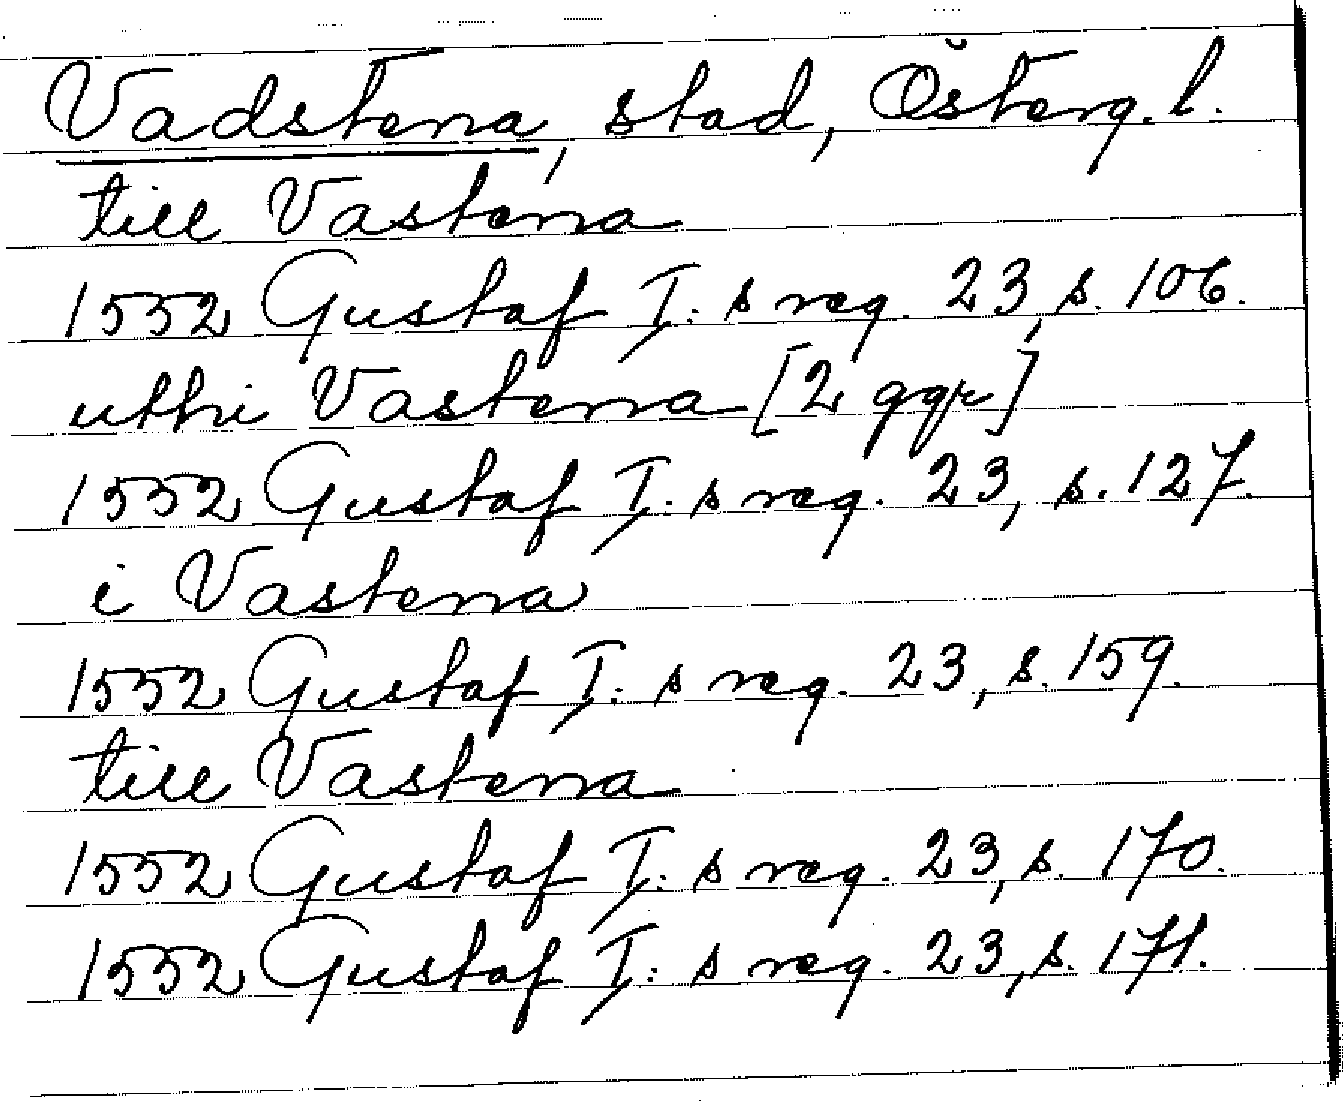 Vadstena, stad, Österg. l.
till Vastena
1552 Gustaf I:s reg. 23, s. 106.
uthi Vastena [2 ggr]
1552 Gustaf I:s reg. 23, s. 127.
i Vastena
1552 Gustaf I:s reg. 23, s. 159.
till Vastena
1552 Gustaf I:s reg. 23, s. 170.
1552 Gustaf I:s reg. 23, s. 171.